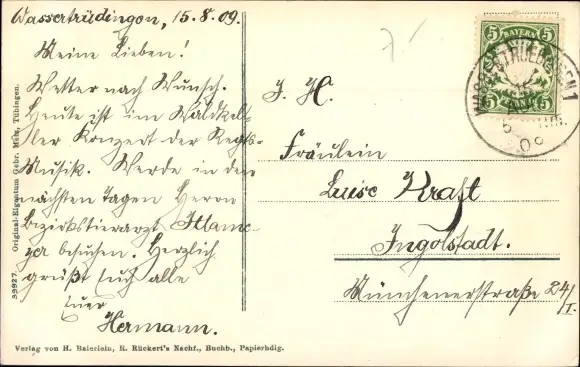 Wassertrüdingen, 15.8.09.
Meine Lieben!
Wetter nach Wunsch.
Heute ist im Waldkel-
ler Konzert der Regts-
Musik. Werde in den
nächsten Tagen Herrn
Bezirkstierarzt
besuchen. Herzlich
grüßt Euch alle
Euer
Hermann.
Verlag von H. Baierlein, R. Rückert's Nachf., Buchb., Papierhdlg.
39827. Original-Eigentum Gebr. Metz, Tübingen.
5 BAYERN 5
5 5
15
AUG
09
F. H.
Fräulein
Luise Kraft
Ingolstadt.
Münchenerstraße 24/I.